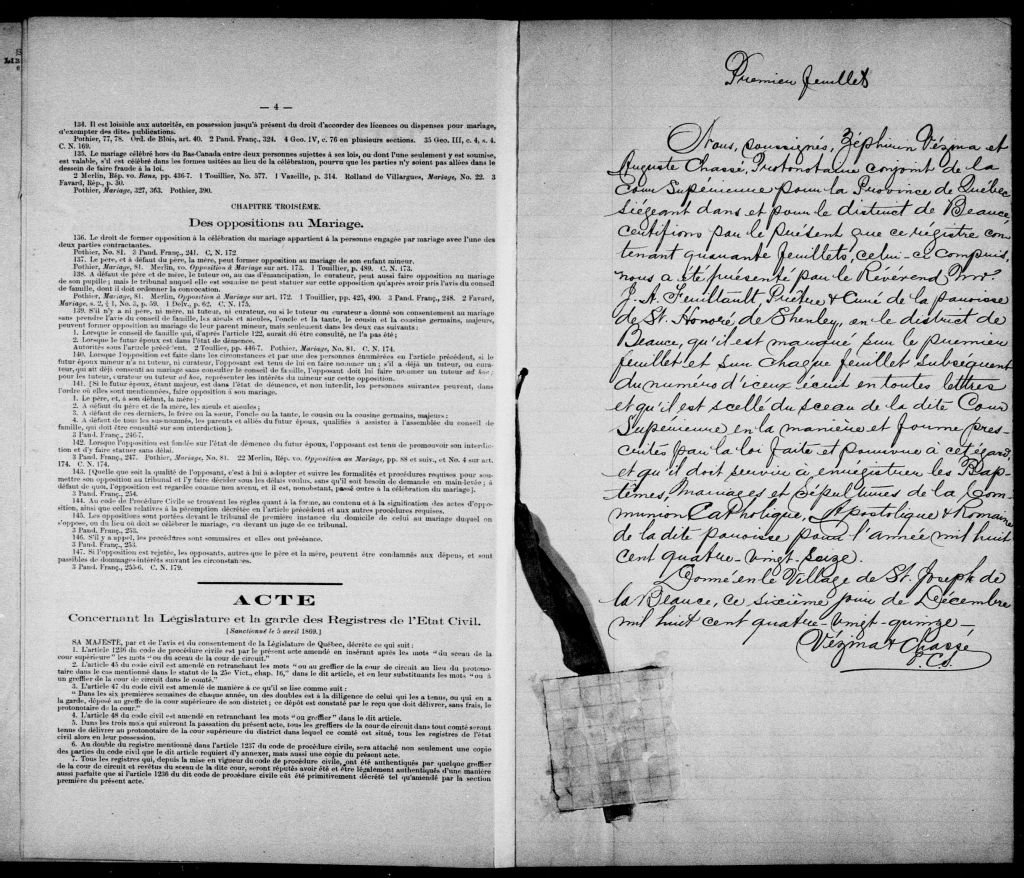 S
— 4 —
134. Il est loisible aux autorités, en possession jusqu'à présent du droit d'accorder des licences ou dispenses pour mariage,
d'exempter des dites publications.
Pothier, 77, 78. Ord. de Blois, art. 40. 2 Pand. Franç., 324. 4 Geo. IV, c. 76 en plusieurs sections. 35 Geo. III, c. 4, s. 4.
C. N. 169.
135. Le mariage célébré hors du Bas-Canada entre deux personnes sujettes à ses lois, ou dont l'une seulement y est soumise,
est valable, s'il est célébré dans les formes usitées au lieu de la célébration, pourvu que les parties n'y soient pas allées dans le
dessein de faire fraude à la loi.
2 Merlin, Rép. vo. Bans, pp. 436-7. 1 Touillier, No. 577. 1 Vazeille, p. 314. Rolland de Villargues, Mariage, No. 22. 3
Favard, Rép., p. 30.
Pothier, Mariage, 327, 363. Pothier, 390.
CHAPITRE TROISIÈME.
Des oppositions au Mariage.
136. Le droit de former opposition à la célébration du mariage appartient à la personne engagée par mariage avec l'une des
deux parties contractantes.
Pothier, No. 81. 3 Pand. Franç., 241. C. N. 172
137. Le père, et à défaut du père, la mère, peut former opposition au mariage de son enfant mineur.
Pothier, Mariage, 81. Merlin, vo. Opposition à Mariage sur art. 173. 1 Touillier, p. 489. C. N. 173.
138. A défaut de père et de mère, le tuteur ou, au cas d'émancipation, le curateur, peut faire opposition au mariage de
son pupille; mais le tribunal auquel elle est soumise ne peut statuer sur cette opposition qu'après avoir pris l'avis du conseil
de famille, dont il doit ordonner la convocation.
Pothier, Mariage, 81. Merlin, Opposition à Mariage sur art. 172. 1 Touillier, pp. 425, 490. 3 Pand. Franç., 248. 2 Favard,
Mariage, s. 2, § 1, No. 3, p. 59. 1 Delv., p. 62. C. N. 175.
139. S'il n'y a ni père, ni mère, ni tuteur, ni curateur, ou si le tuteur ou curateur a donné son consentement au mariage
sans prendre l'avis du conseil de famille, les aïeuls et aïeules, l'oncle et la tante, le cousin et la cousine germains, majeurs,
peuvent former opposition au mariage de leur parent mineur, mais seulement dans les deux cas suivants:
1. Lorsque le conseil de famille qui, d'après l'article 122, aurait dû être consulté, ne l'a pas été;
2. Lorsque le futur époux est dans l'état de démence.
Autorités sous l'article précédent. 2 Touillier, pp. 446-7. Pothier, Mariage, No. 81. C. N. 174.
140. Lorsque l'opposition est faite dans les circonstances et par une des personnes énumérées en l'article précédent, si le
futur époux mineur n'a ni tuteur, ni curateur, l'opposant est tenu de lui en faire nommer un; s'il a déjà un tuteur, ou cura-
teur, qui ait déjà consenti au mariage sans consulter le conseil de famille, l'opposant doit lui faire nommer un tuteur ad hoc;
pour les tuteur, curateur ou tuteur ad hoc, représenter les intérêts du mineur sur cette opposition.
141. [Si le futur époux, étant majeur, est dans l'état de démence, et non interdit, les personnes suivantes peuvent, dans
l'ordre où elles sont mentionnées, faire opposition à son mariage.
1. Le père, et, à son défaut, la mère;
2. A défaut du père et de la mère, les aïeuls et aïeules;
3. A défaut de ces derniers, le frère ou la sœur, l'oncle ou la tante, le cousin ou la cousine germains, majeurs;
4. A défaut de tous les sus-nommés, les parents et alliés du futur époux, qualifiés à assister à l'assemblée du conseil de
famille, qui doit être consulté sur son interdiction].
3 Pand. Franç., 246-7.
142. Lorsque l'opposition est fondée sur l'état de démence du futur époux, l'opposant est tenu de promouvoir son interdic-
tion et d'y faire statuer sans délai.
3 Pand. Franç., 247. Pothier, Mariage, No. 81. 22 Merlin, Rép. vo. Opposition au Mariage, pp. 88 et suiv., et No. 4 sur art.
174. C. N. 174.
143. [Quelle que soit la qualité de l'opposant, c'est à lui à adopter et suivre les formalités et procédures requises pour sou-
mettre son opposition au tribunal et l'y faire décider sous les délais voulus, sans qu'il soit besoin de demande en main-levée; à
défaut de quoi, l'opposition est regardée comme non avenu, et il est, nonobstant, passé outre à la célébration du mariage].
3 Pand. Franç., 254.
144. Au code de Procédure Civile se trouvent les règles quant à la forme, au contenu et à la signification des actes d'oppo-
sition, ainsi que celles relatives à la péremption décrétée en l'article précédent et aux autres procédures requises.
145. Les oppositions sont portées devant le tribunal de première instance du domicile de celui au mariage duquel on
s'oppose, ou du lieu où doit se célébrer le mariage, ou devant un juge de ce tribunal.
3 Pand. Franç., 253.
146. S'il y a appel, les procédures sont sommaires et elles ont préséance.
3 Pand. Franç., 253.
147. Si l'opposition est rejetée, les opposants, autres que le père et la mère, peuvent être condamnés aux dépens, et sont
passibles de dommages-intérêts suivant les circonstances.
3 Pand. Franç., 255-6. C. N. 179.
ACTE
Concernant la Législature et la garde des Registres de l'Etat Civil.
[Sanctionné le 5 avril 1869.]
SA MAJESTÉ, par et de l'avis et du consentement de la Législature de Québec, décrète ce qui suit:
1. L'article 1236 du code de procédure civile est par le présent acte amendé en insérant après les mots "du sceau de la
cour supérieure" les mots "ou du sceau de la cour de circuit."
2. L'article 45 du code civil est amendé en retranchant les mots "ou au greffier de la cour de circuit au lieu du protono-
taire dans le cas mentionné dans le statut de la 25e Vict., chap. 16," dans le dit article, et en leur substituants les mots "ou à
un greffier de la cour de circuit dans le comté."
3. L'article 47 du code civil est amendé de manière à ce qu'il se lise comme suit:
"Dans les six premières semaines de chaque année, un des doubles est à la diligence de celui qui les a tenus, ou qui en a
la garde, déposé au greffe de la cour supérieure de son district; ce dépôt est constaté par le reçu que doit délivrer, sans frais, le
protonotaire de la cour."
4. L'article 48 du code civil est amendé en retranchant les mots "ou greffier" dans le dit article.
5. Dans les trois mois qui suivront la passation du présent acte, tous les greffiers de la cour de circuit dans tout comté seront
tenus de délivrer au protonotaire de la cour supérieure du district dans lequel ce comté est situé, tous les registres de l'état
civil alors en leur possession.
6. Au double du registre mentionné dans l'article 1237 du code de procédure civile, sera attaché non seulement une copie
des parties du code civil que le dit article requiert d'y annexer, mais aussi une copie du présent acte.
7. Tous les registres qui, depuis la mise en vigueur du code de procédure civile, ont été authentiqués par quelque greffier
de la cour de circuit et revêtus du sceau de la dite cour, seront réputés avoir été et être légalement authentiqués d'une manière
aussi parfaite que si l'article 1236 du dit code de procédure civile eût été primitivement décrété tel qu'amendé par la section
première du présent acte.
Premier feuillet
Nous, soussignés, Zéphirin Vézina et
Auguste Chassé, Protonotaire conjoint de la
Cour Supérieure pour la Province de Québec
siégeant dans et pour le district de Beauce
certifions par le Présent que ce registre con-
tenant quarante feuillets, celui-ci compris,
nous a été présenté par le Révérend Mr.
J. A. Feuiltault, Prêtre & Curé de la paroisse
de St. Honoré de Shenley, en le district de
Beauce, qu'il est marqué sur le premier
feuillet et sur chaque feuillet subséquent
du numéro d'iceux écrit en toutes lettres
et qu'il est scellé du sceau de la dite Cour
Supérieure en la manière et forme pres-
crites par la loi faite et pourvue à cet égard,
et qu'il doit servir à enregistrer les Bap-
têmes, Mariages et Sépultures de la Com-
munion Catholique, Apostolique & Romaine
de la dite paroisse pour l'année mil huit
cent quatre-vingt-seize.
Donné en le Village de St. Joseph de
la Beauce, ce sixième jour de Décembre
mil huit cent quatre-vingt-quinze —
Vézina & Chassé
P. C. S.